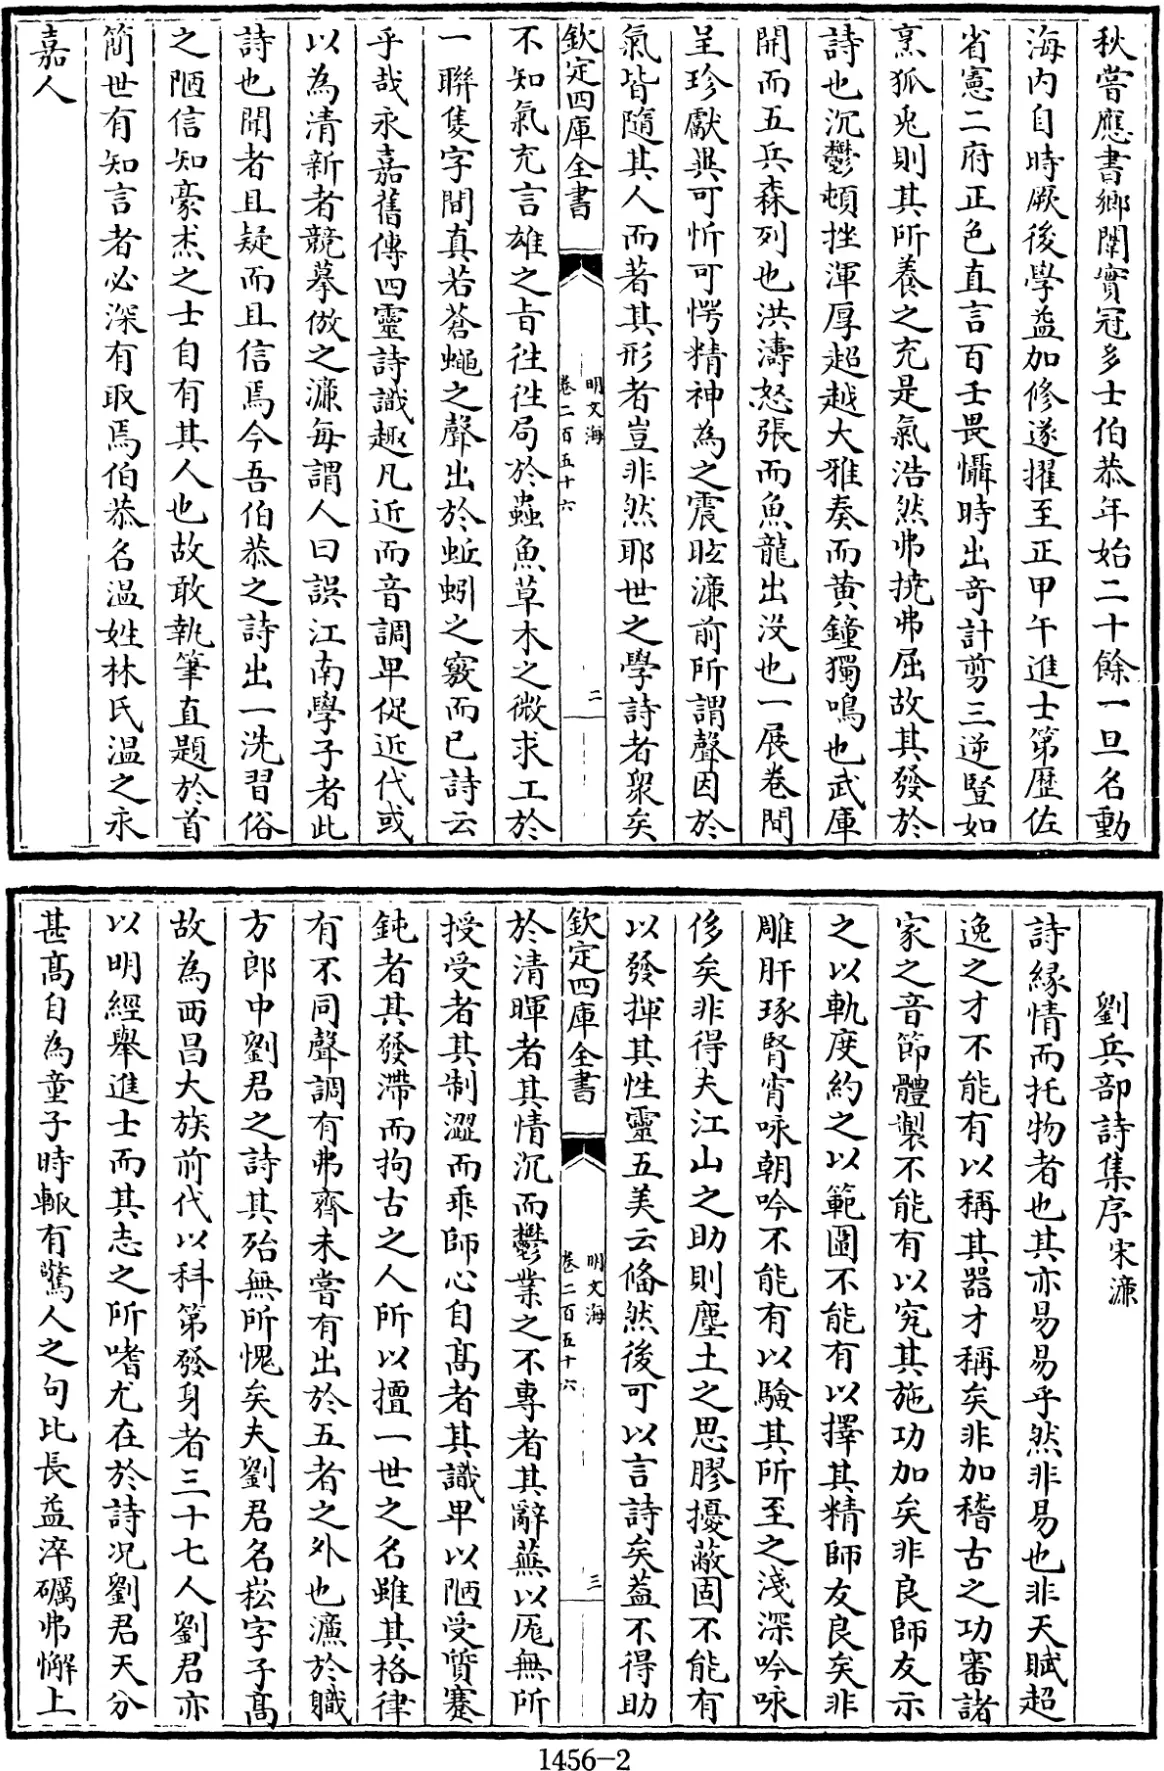 秋嘗應書鄉闈實冠多士伯恭年始二十餘一旦名動
海内自時厥後學益加修遂擢至正甲午進士第歴佐
省憲二府正色直言百壬畏懾時出竒計剪三逆豎如
烹狐兎則其所養之充是氣浩然弗撓弗屈故其發於
詩也沉鬱頓挫渾厚超越大雅奏而黄鐘獨鳴也武庫
開而五兵森列也洪濤怒張而魚龍出没也一展卷間
呈珍獻異可忻可愕精神為之震眩濂前所謂聲因於
氣皆隨其人而著其形者豈非然耶世之學詩者衆矣
欽定四庫全書
明文海
卷二百五十六
二
不知氣充言雄之旨徃徃局於蟲魚草木之微求工於
一聯隻字間真若蒼蠅之聲出於蚯蚓之竅而已詩云
乎哉永嘉舊傳四靈詩識趣凡近而音調卑促近代或
以為清新者競摹倣之濂每謂人曰誤江南學子者此
詩也聞者且疑而且信焉今吾伯恭之詩出一洗習俗
之陋信知豪杰之士自有其人也故敢執筆直題於首
簡世有知言者必深有取焉伯恭名温姓林氏温之永
嘉人
劉兵部詩集序 宋濂
詩縁情而托物者也其亦易易乎然非易也非天賦超
逸之才不能有以稱其器才稱矣非加稽古之功審諸
家之音節體製不能有以究其施功加矣非良師友示
之以軌度約之以範圍不能有以擇其精師友良矣非
雕肝琢腎宵咏朝吟不能有以驗其所至之淺深吟咏
侈矣非得夫江山之助則塵土之思膠擾蔽固不能有
以發揮其性靈五美云俻然後可以言詩矣葢不得助
欽定四庫全書
明文海
卷二百五十六
三
於清暉者其情沉而鬱業之不專者其辭蕪以厖無所
授受者其制澀而乖師心自高者其識卑以陋受質蹇
鈍者其發滯而拘古之人所以擅一世之名雖其格律
有不同聲調有弗齊未嘗有出於五者之外也濂於職
方郎中劉君之詩其殆無所愧矣夫劉君名崧字子髙
故為西昌大族前代以科第發身者三十七人劉君亦
以明經舉進士而其志之所嗜尤在於詩况劉君天分
甚髙自為童子時輙有驚人之句比長益淬礪弗懈上
1456-2